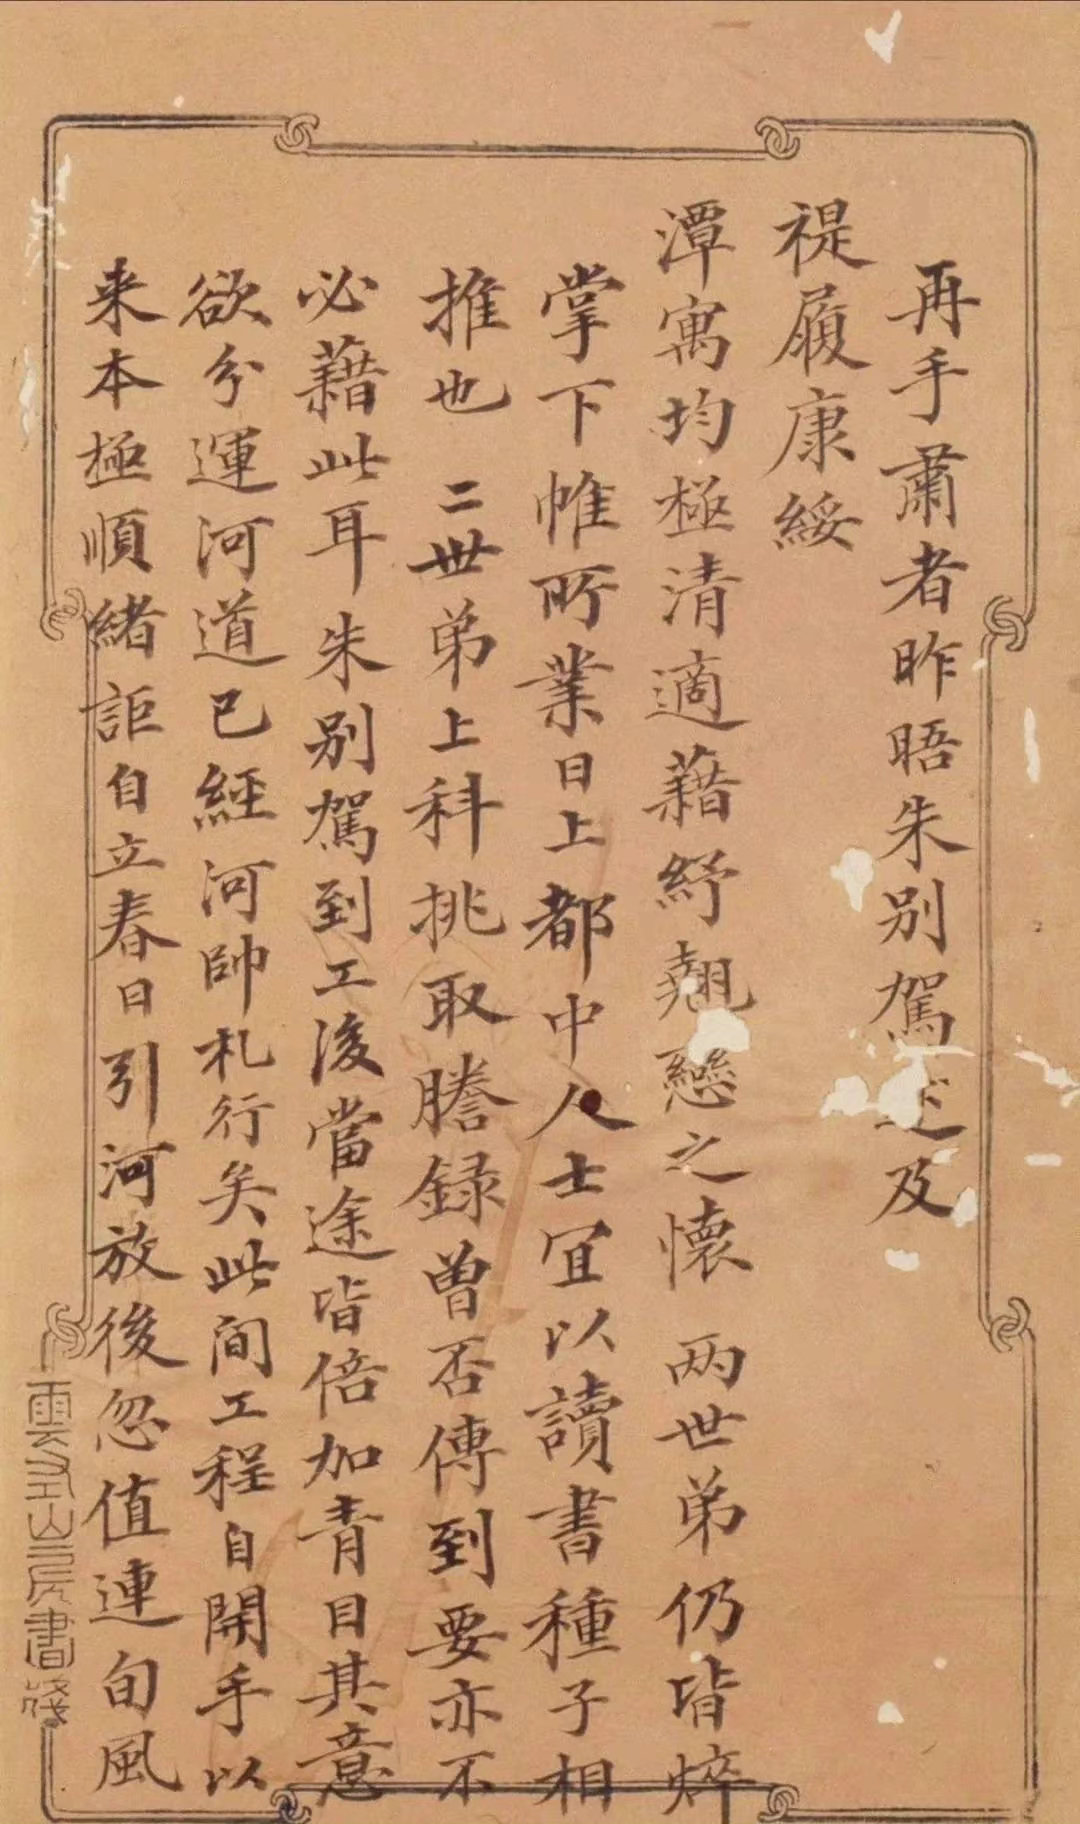 再手肅者昨晤朱别駕述及
禔履康綏
潭寓均極清適藉紓翹戀之懷 两世弟仍皆焠
掌下帷所業日上都中人士宜以讀書種子相
推也 二世弟上科挑取謄録曾否傳到要亦不
必藉此耳朱别駕到工後當途皆倍加青目其意
欲分運河道已經河帥札行矣此间工程自開手以
来本極順緒詎自立春日引河放後忽值連旬風
雲山房書箋